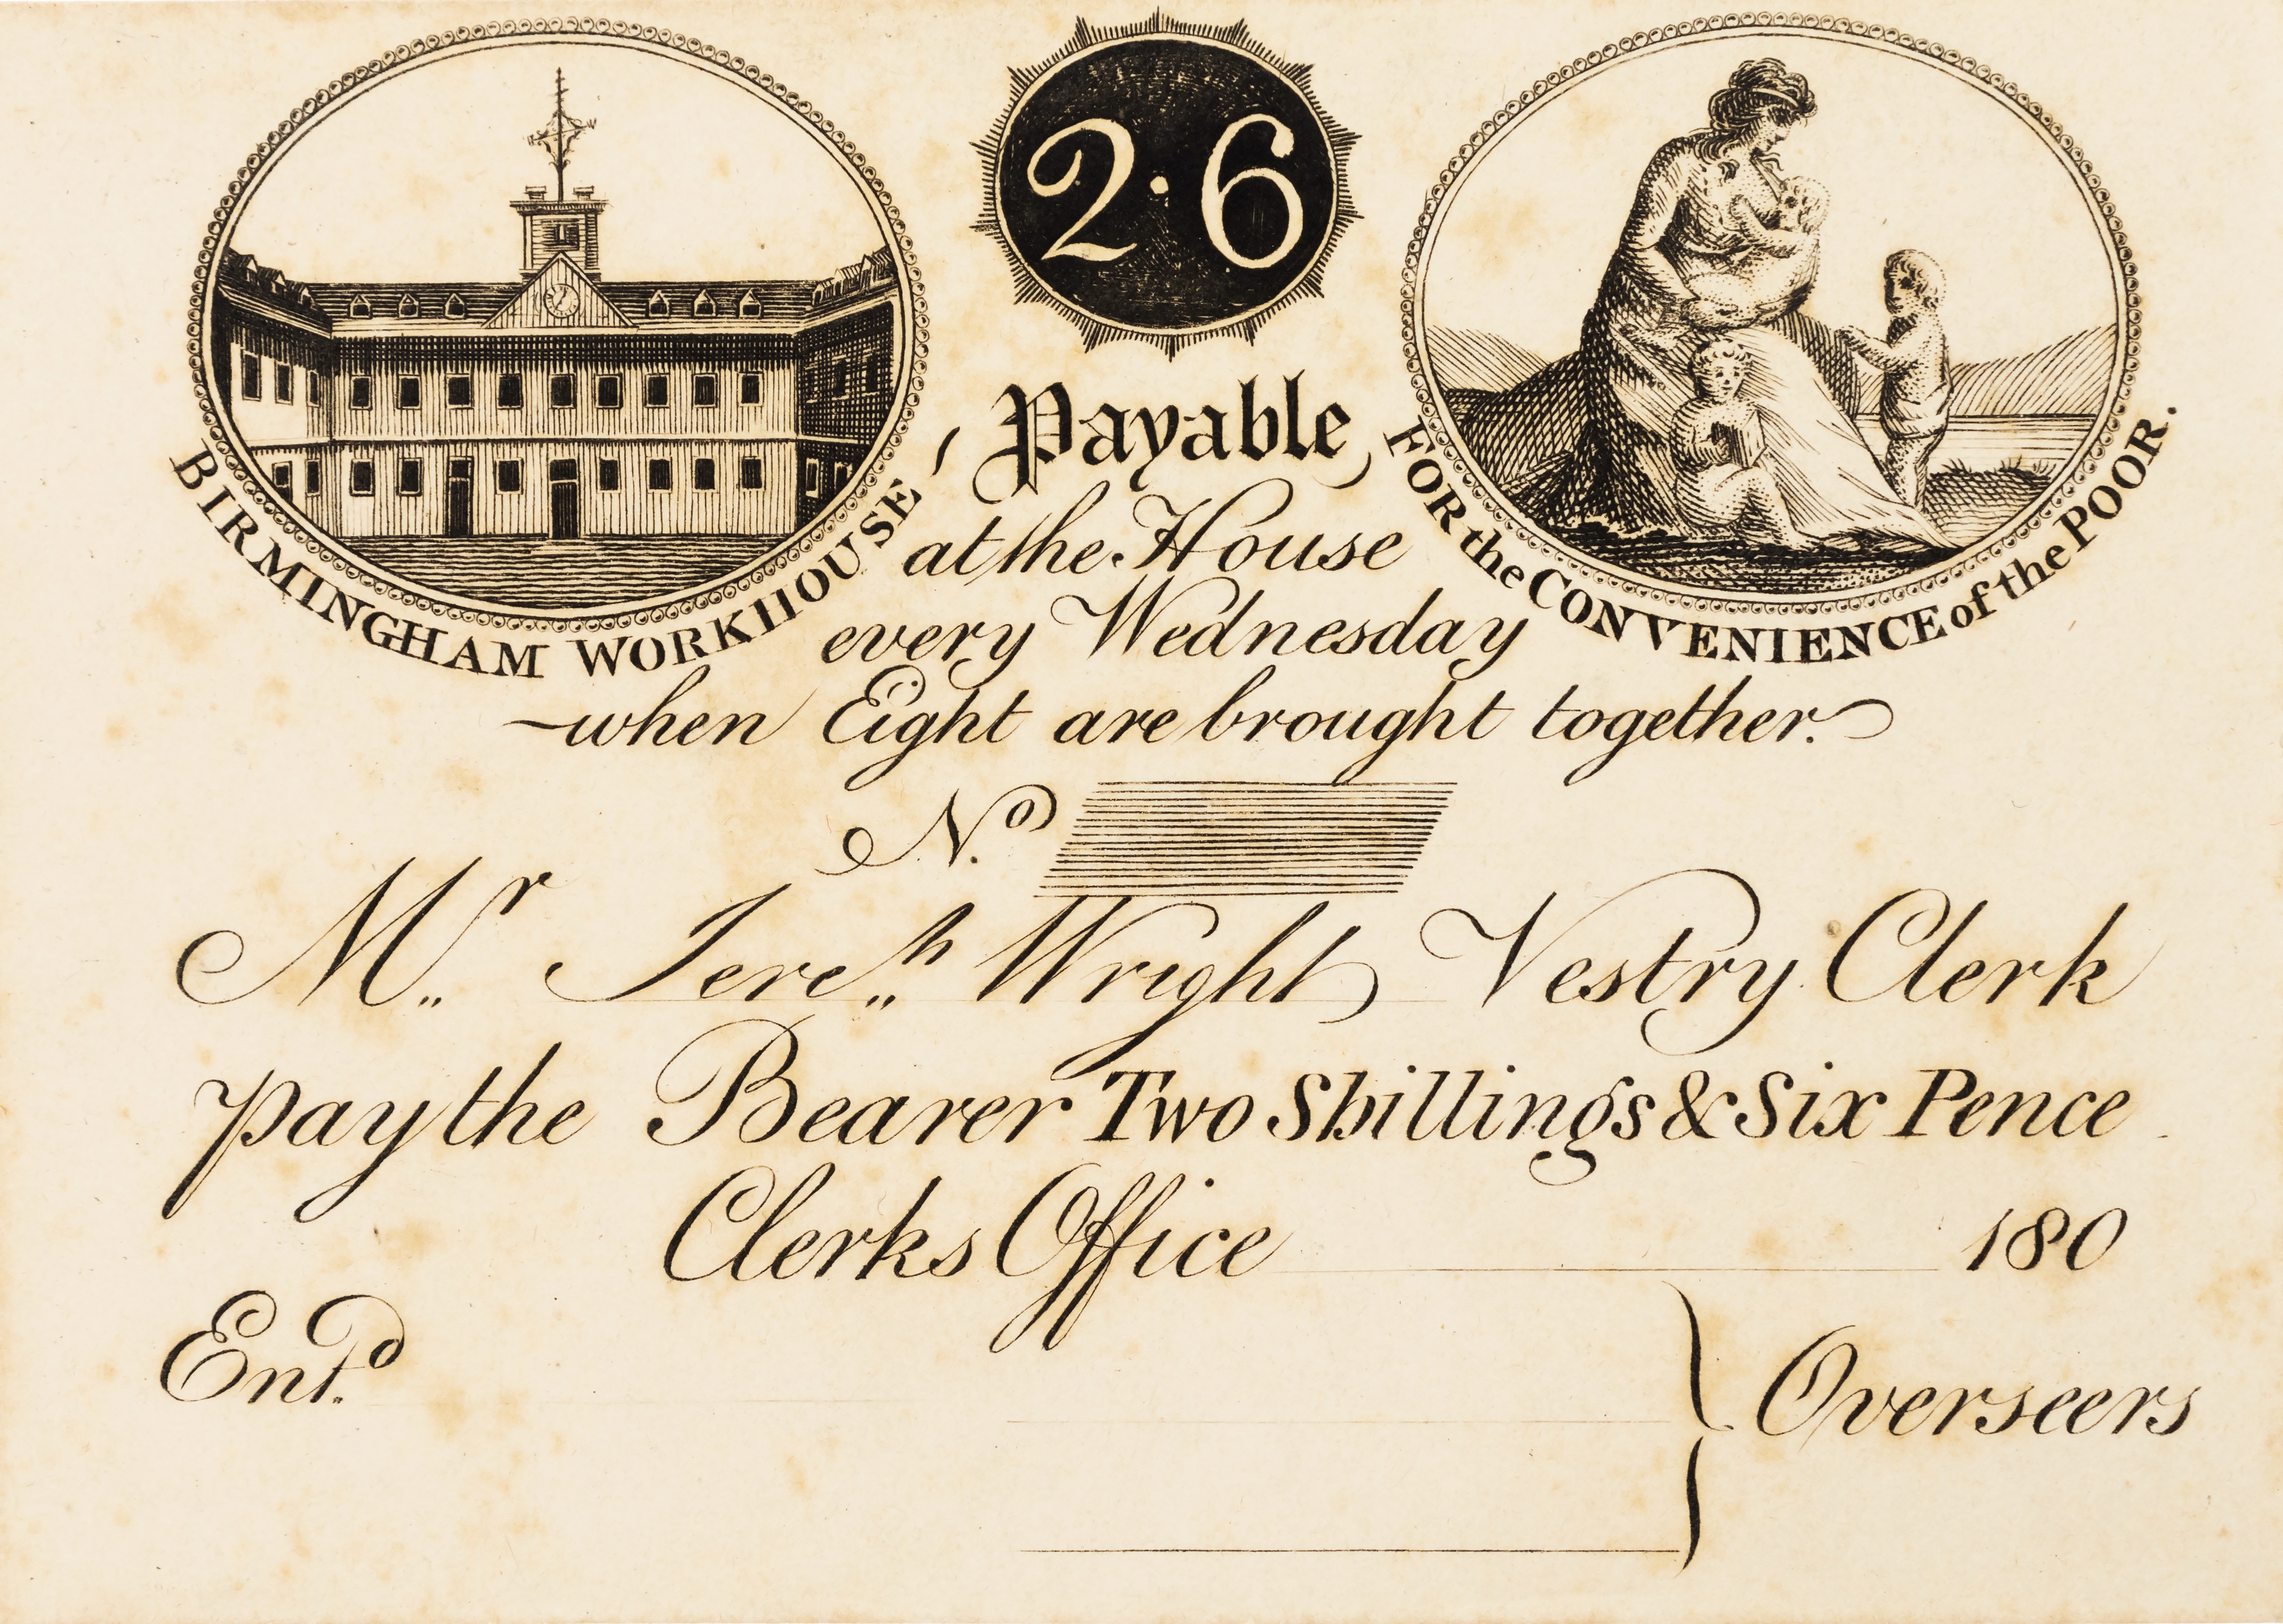 2·6
BIRMINGHAM WORKHOUSE,
FOR the CONVENIENCE of the POOR.
Payable,
at the House
every Wednesday
when Eight are brought together.
No.
Mr. Jere.h Wright Vestry Clerk
pay the Bearer Two Shillings & Six Pence
Clerks Office 180
Ent.d
Overseers